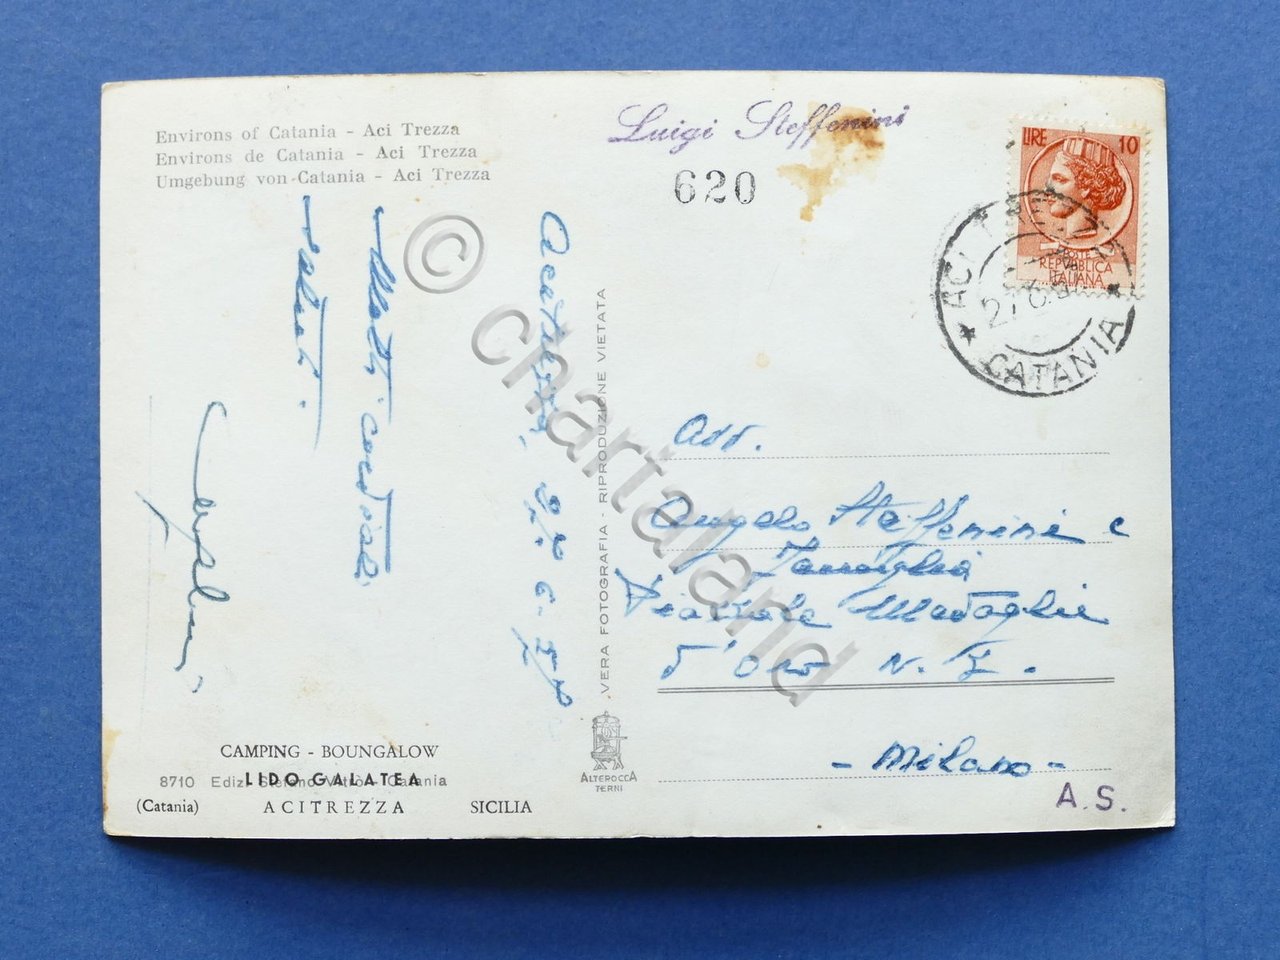 Environs of Catania - Aci Trezza
Environs de Catania - Aci Trezza
Umgebung von Catania - Aci Trezza
Luigi Steffenini
620
LIRE 10
POSTE
REPVBBLICA
ITALIANA
ACI TREZZA
CATANIA
Acitrezza,
Molti cordiali
saluti.
VERA FOTOGRAFIA - RIPRODUZIONE VIETATA
Avv.
Angelo Steffenini e
Famiglia
Piazzale Medaglie
d'Oro N.
- Milano -
A. S.
CAMPING - BOUNGALOW
8710 Ediz. Stefano Vitrò - Catania
LIDO GALATEA
(Catania) ACITREZZA SICILIA
ALTEROCCA
TERNI
© chartaland